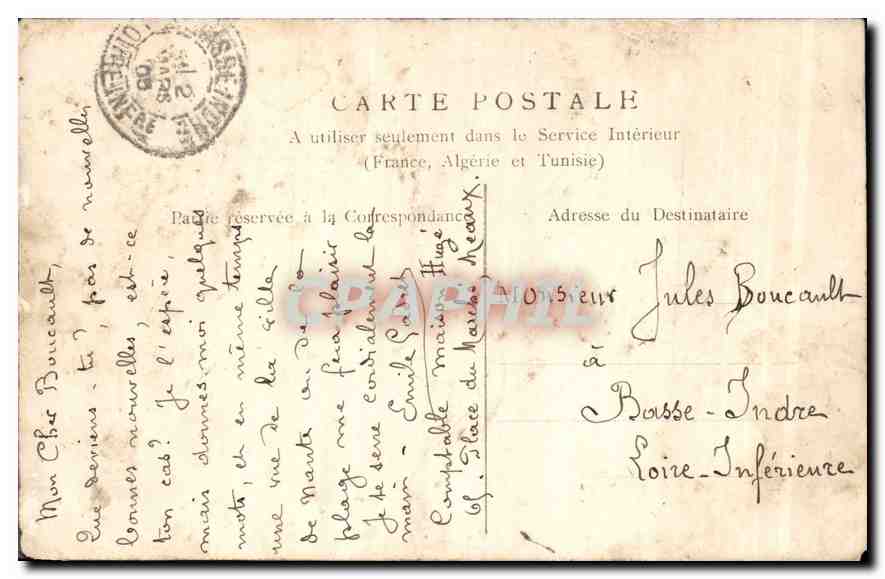 CARTE POSTALE
A utiliser seulement dans le Service Intérieur
(France, Algérie et Tunisie)
Partie réservée à la Correspondance
Adresse du Destinataire
Mon Cher Boucault,
Que deviens-tu? pas de nouvelles
bonnes nouvelles, est-ce
ton cas? Je l'espère,
mais donnes moi quelques
mots, et en même temps
une vue de la ville
de Nante ou de la
plage me fera plaisir
Je te serre cordialement la
main - Emile
Comptable maison Hugé
Place du Marché Meaux.
Monsieur Jules Boucault
à
Basse-Indre
Loire-Inférieure
BASSE-INDRE
LOIRE-INFRE
CPAPHIL